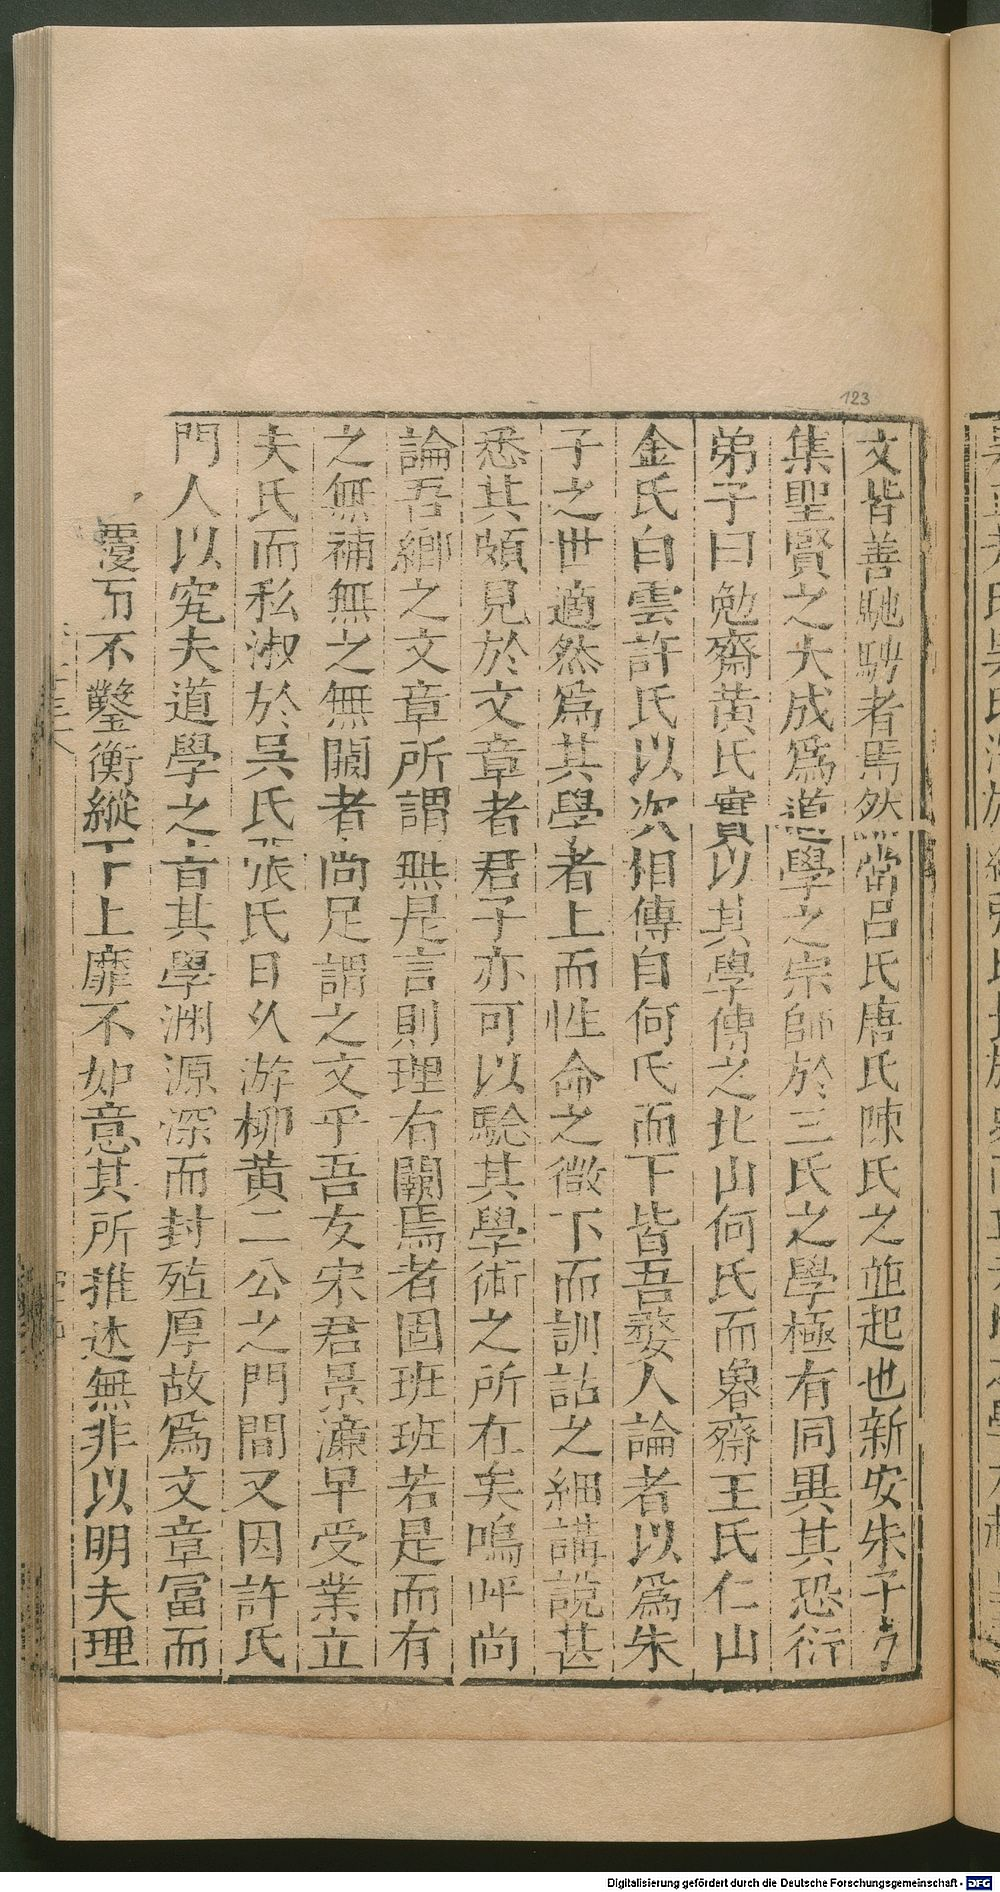 123
文皆善馳騁者焉然當呂氏唐氏陳氏之並起也新安朱子方
集聖賢之大成爲道學之宗師於三氏之學極有同異其恐衍
弟子曰勉齋黃氏實以其學傳之北山何氏而魯齋王氏仁山
金氏白雲許氏以次相傳自何氏而下皆吾婺人論者以爲朱
子之世適然爲其學者上而性命之微下而訓詁之細講說甚
悉其頗見於文章者君子亦可以騐其學術之所在矣嗚呼尚
論吾鄉之文章所謂無是言則理有闕焉者固班班若是而有
之無補無之無闕者尚足謂之文乎吾友宋君景濂早受業立
夫氏而私淑於吳氏張氏且久游柳黃二公之門間又因許氏
門人以究夫道學之旨其學渊源深而封殖厚故爲文章富而
不鑿衡縱上下靡不如意其所推述無非以明夫理
Digitalisierung gefördert durch die Deutsche Forschungsgemeinschaft - DFG